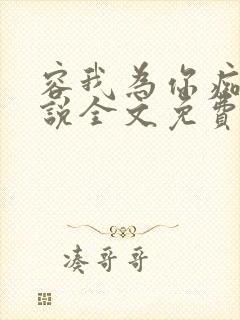 容我为你痴
說全文免費
凑哥哥